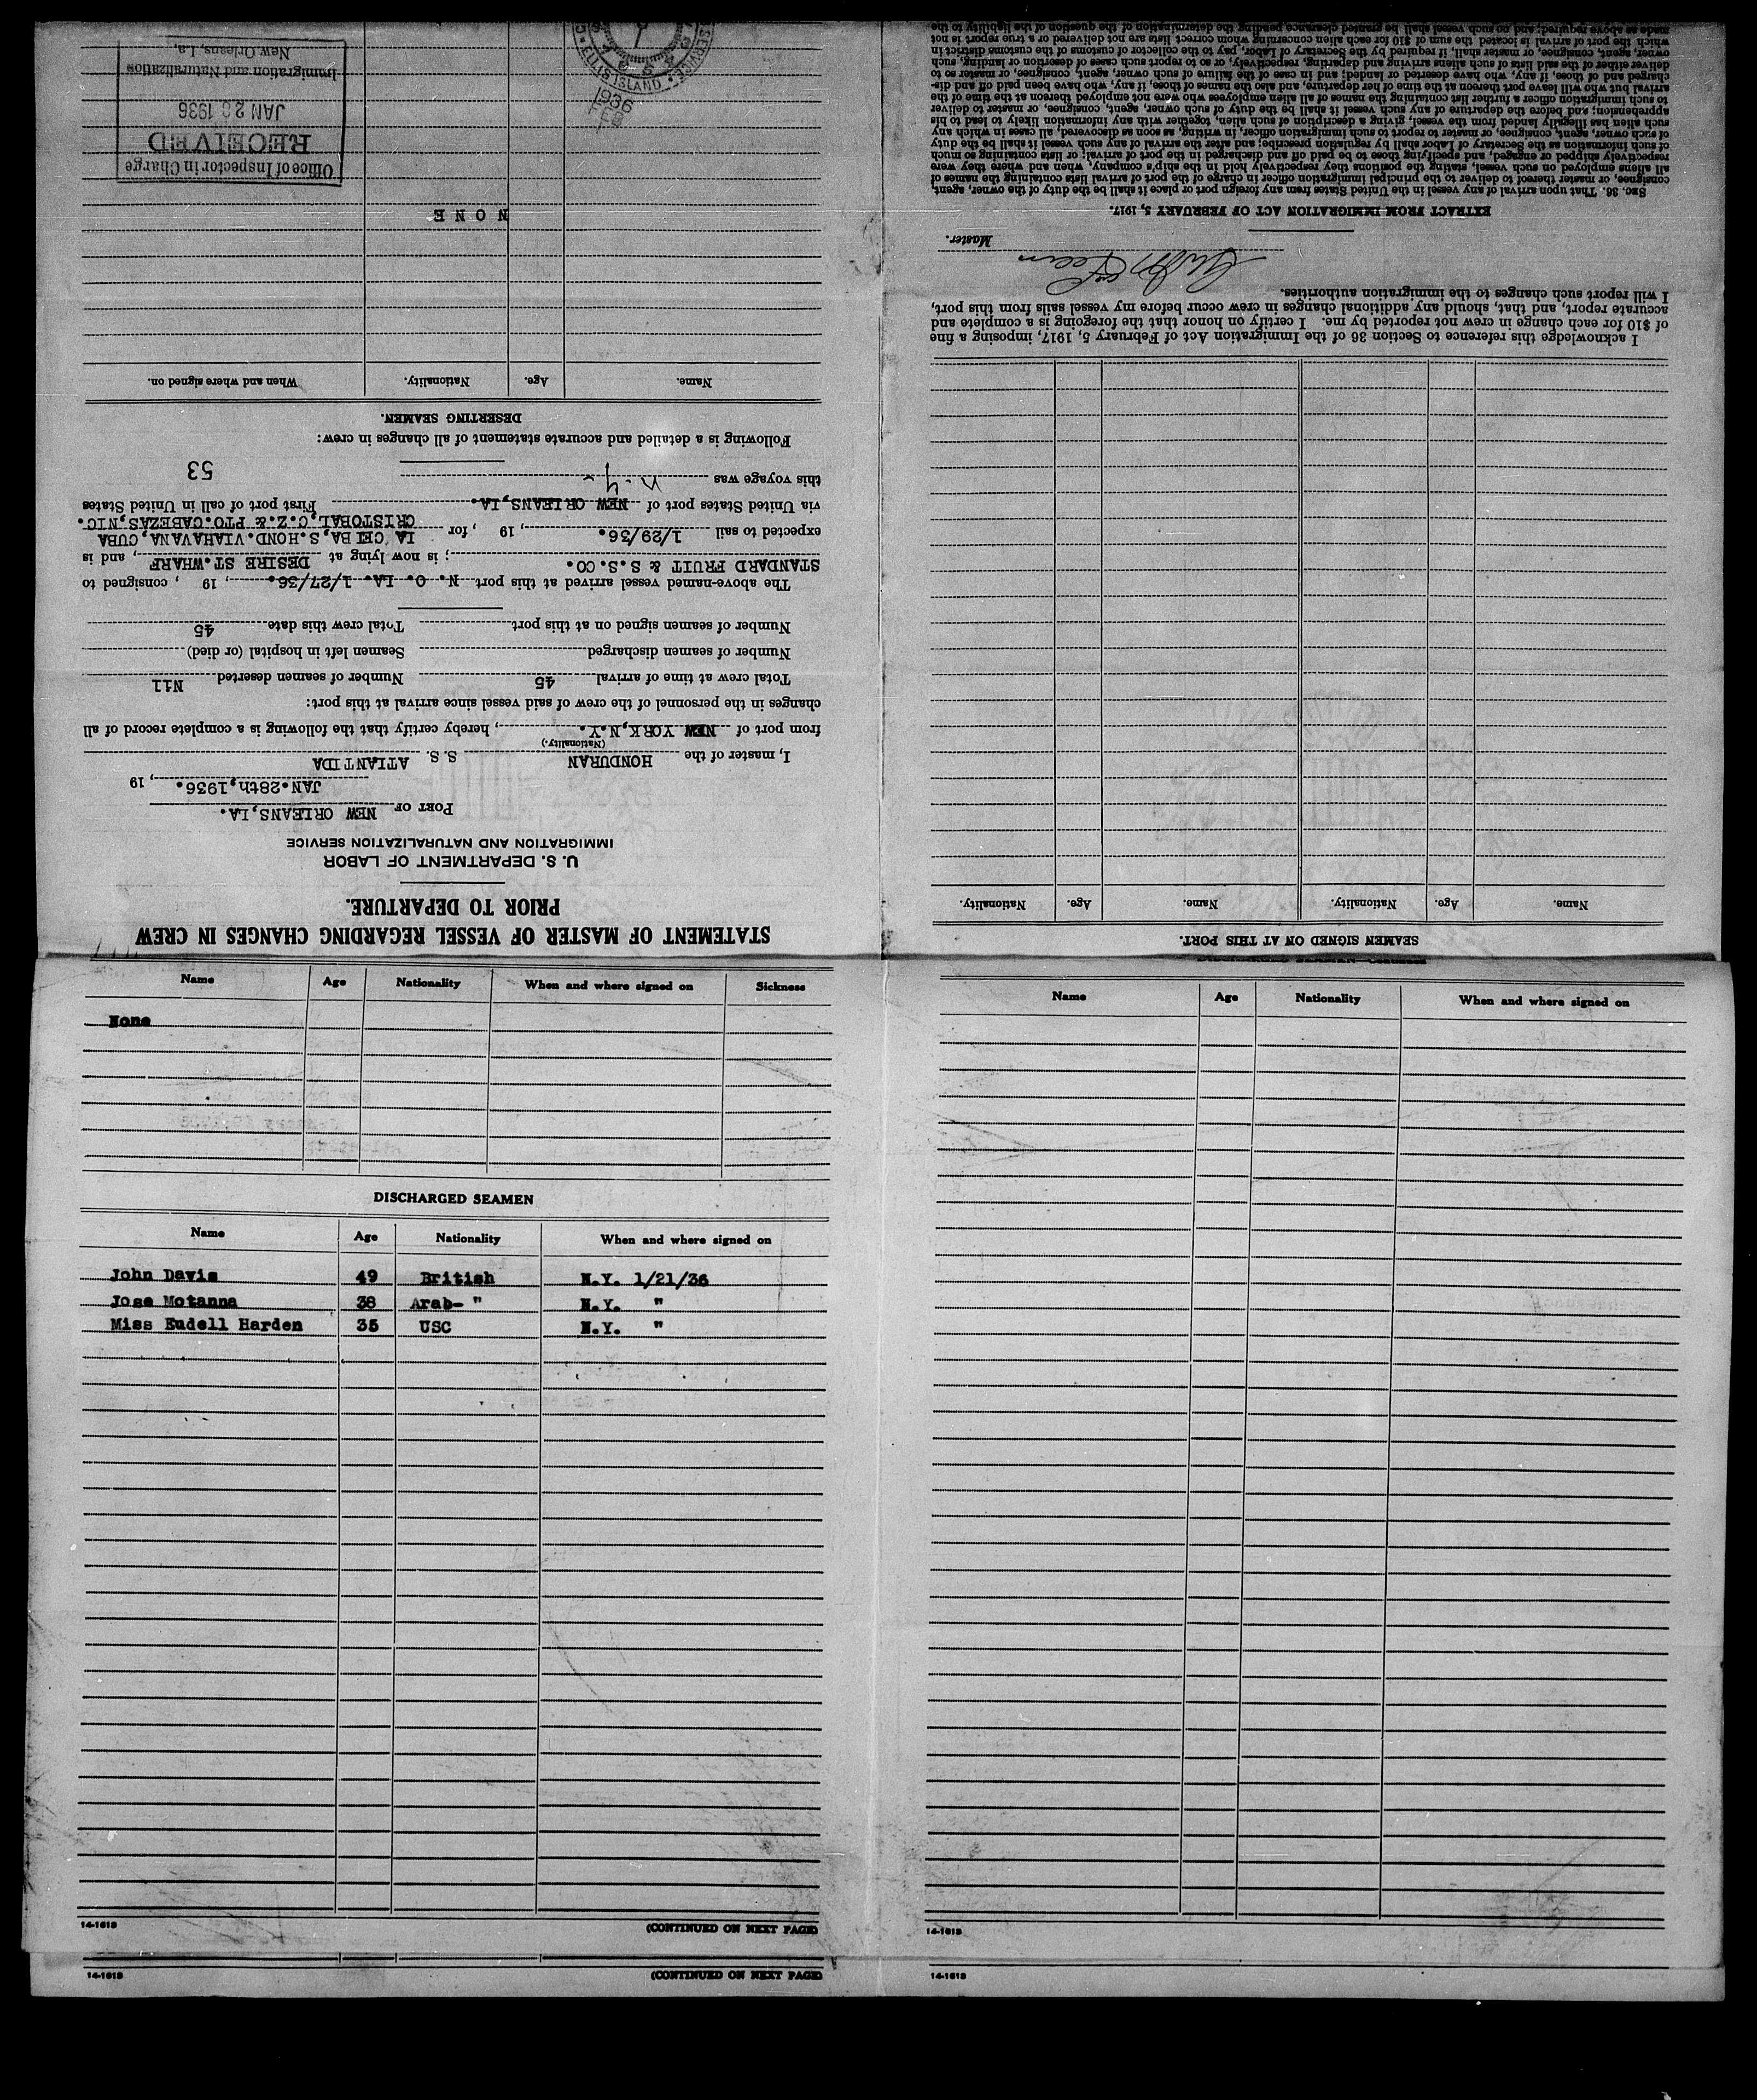 STATEMENT OF MASTER OF VESSEL REGARDING CHANGES IN CREW
PRIOR TO DEPARTURE.
U. S. DEPARTMENT OF LABOR
IMMIGRATION AND NATURALIZATION SERVICE
PORT OF NEW ORLEANS, LA.
JAN. 28th, 1936. , 19
I, master of the HONDURAN S. S. ATLANTIDA
(Nationality.)
from port of NEW YORK, N.Y. , hereby certify that the following is a complete record of all
changes in the personnel of the crew of said vessel since arrival at this port:
Total crew at time of arrival 45 Number of seamen deserted Nil
Number of seamen discharged Seamen left in hospital (or died)
Number of seamen signed on at this port Total crew this date 45
The above-named vessel arrived at this port N. O. LA. 1/27/36. , 19 , consigned to
STANDARD FRUIT & S.S. CO. ; is now lying at DESIRE ST. WHARF , and is
expected to sail 1/29/36. , 19 , for LA CEIBA, S. HOND. VIA HAVANA, CUBA
CRISTOBAL, C.Z. & PTO. CABEZAS, NIC.
via United States port of NEW ORLEANS, LA. First port of call in United States
this voyage was n. y. 53
Following is a detailed and accurate statement of all changes in crew:
DESERTING SEAMEN.
Name. Age. Nationality. When and where signed on.
N O N E
Office of Inspector in Charge
RECEIVED
JAN 28 1936
Immigration and Naturalization
New Orleans, La.
SERVICE
ELLIS ISLAND
1936
FEB
SEAMEN SIGNED ON AT THIS PORT.
Name. Age. Nationality. Name. Age. Nationality.
I acknowledge this reference to Section 36 of the Immigration Act of February 5, 1917, imposing a fine
of $10 for each change in crew not reported by me. I certify on honor that the foregoing is a complete and
accurate report, and that, should any additional changes in crew occur before my vessel sails from this port,
I will report such changes to the immigration authorities.
Master.
EXTRACT FROM IMMIGRATION ACT OF FEBRUARY 5, 1917.
SEC. 36. That upon arrival of any vessel in the United States from any foreign port or place it shall be the duty of the owner, agent,
consignee, or master thereof to deliver to the principal immigration officer in charge of the port of arrival lists containing the names of
all aliens employed on such vessel, stating the positions they respectively hold in the ship's company, when and where they were
respectively shipped or engaged, and specifying those to be paid off and discharged in the port of arrival; or lists containing so much
of such information as the Secretary of Labor shall by regulation prescribe; and after the arrival of any such vessel it shall be the duty
of such owner, agent, consignee, or master to report to such immigration officer, in writing, as soon as discovered, all cases in which any
such alien has illegally landed from the vessel, giving a description of such alien, together with any information likely to lead to his
apprehension; and before the departure of any such vessel it shall be the duty of such owner, agent, consignee, or master to deliver
to such immigration officer a further list containing the names of all alien employees who were not employed thereon at the time of the
arrival but who will leave port thereon at the time of her departure, and also the names of those, if any, who have been paid off and dis-
charged and of those, if any, who have deserted or landed; and in case of the failure of such owner, agent, consignee, or master so to
deliver either of the said lists of such aliens arriving and departing, respectively, or so to report such cases of desertion or landing, such
owner, agent, consignee, or master, shall, if required by the Secretary of Labor, pay to the collector of customs of the customs district in
which the port of arrival is located the sum of $10 for each alien concerning whom correct lists are not delivered or a true report is not
made as above required; and no such vessel shall be granted clearance pending the determination of the question of the liability to the
Name Age Nationality When and where signed on Sickness
None
DISCHARGED SEAMEN
Name Age Nationality When and where signed on
John Davis 49 British N.Y. 1/21/36
Jose Motanna 38 Arab- " N.Y. "
Miss Eudell Harden 35 USC N.Y. "
14-1618 (CONTINUED ON NEXT PAGE)
14-1618 (CONTINUED ON NEXT PAGE)
Name Age Nationality When and where signed on
14-1618
14-1618